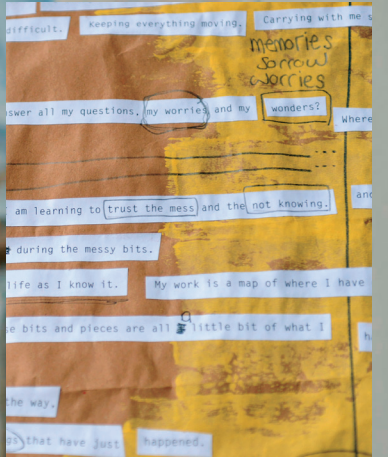 difficult. Keeping everything moving. Carrying with me s
memories
sorrow
worries
swer all my questions, my worries, and my wonders?
Where
am learning to trust the mess and the not knowing. and
during the messy bits.
life as I know it. My work is a map of where I have
e bits and pieces are all a little bit of what I
h
the way.
gs that have just happened.